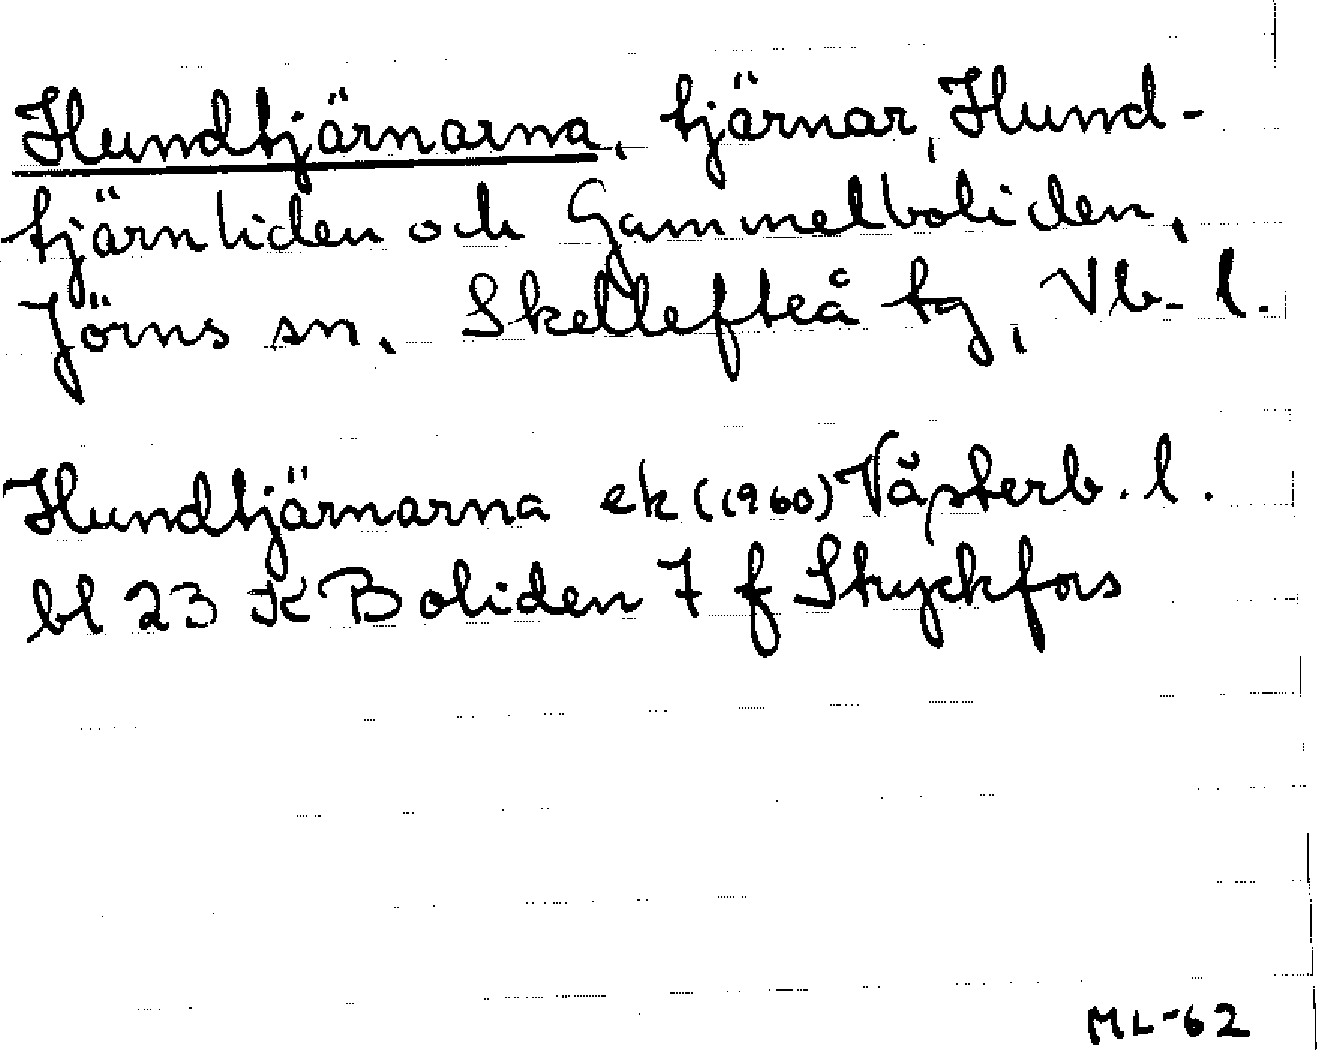 Hundtjärnarna, tjärnar, Hund-
tjärnliden och Gammelboliden,
Jörns sn, Skellefteå tg, Vb-l.
Hundtjärnarna ek (1960) Västerb. l.
bl 23 K Boliden 7 f Styckfors
ML-62